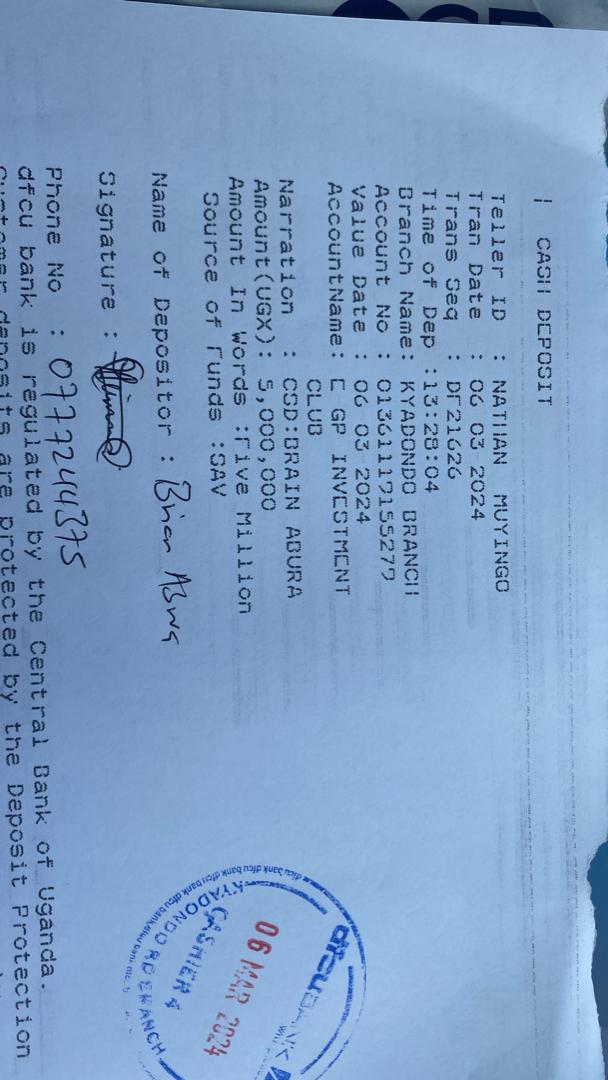 CASH DEPOSIT
Teller ID : NATHAN MUYINGO
Tran Date : 06 03 2024
Trans Seq : DF21626
Time of Dep :13:28:04
Branch Name: KYADONDO BRANCH
Account No : 01361119155279
Value Date : 06 03 2024
AccountName: E GP INVESTMENT
CLUB
Narration : CSD:BRAIN ABURA
Amount(UGX): 5,000,000
Amount In Words :Five Million
Source of Funds :SAV
Name of Depositor : Brian
Signature :
Phone No : 0777244375
dfcu bank is regulated by the Central Bank of Uganda.
Customer deposits are protected by the Deposit Protection
dfcu BANK
06 MAR 2024
CASHIER
KYADONDO RD BRANCH